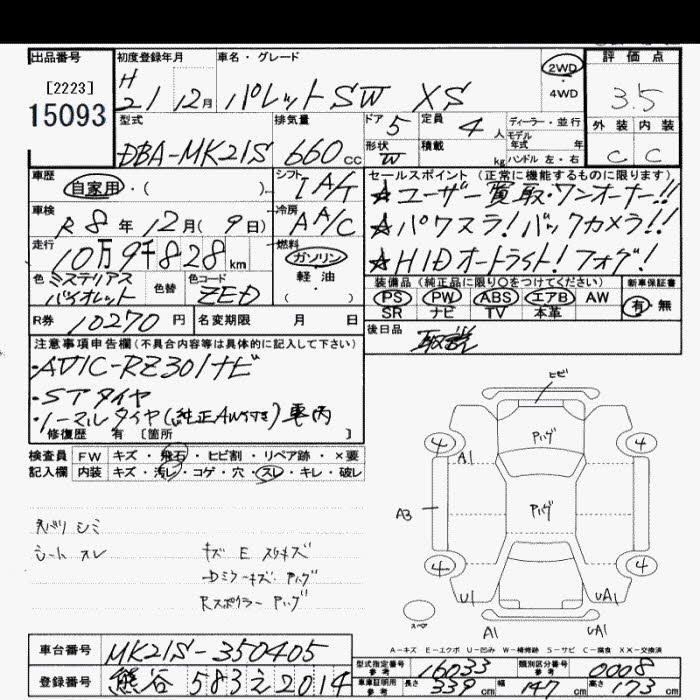 出品番号 初度登録年月 車名・グレード 評価点
[2223] H 2WD
15093 21 12月 パレットSW XS ・ 4WD 3.5
型式 排気量 ドア 5 定員 4人 ディーラー・並行 外装 内装
モデル年式 年
DBA-MK21S 660cc 形状 W 積載 kg ハンドル 左・右 C C
車歴 自家用・( ) シフト IA/T セールスポイント(正常に機能するものに限ります)
☆ユーザー買取・ワンオーナー!!
車検 R8年12月(9日) 冷房 AA/C ☆パワスラ!バックカメラ!!
走行 10万9千828km 燃料 ガソリン ☆HIDオートライト!フォグ!
軽油
( )
色 ミステリアスバイオレット 色替 色コード ZED 装備品(純正品に限り○をつけてください) 新車保証書
PS PW ABS エアB AW 有・無
SR ナビ TV 本革
R券 10270円 名変期限 月 日 後日品 取説
注意事項申告欄(不具合内容等は具体的に記入して下さい)
・AVIC-RZ301ナビ
・STタイヤ
・ノーマルタイヤ(純正AW付き)車内
修復歴 有 [箇所 ]
検査員 FW キズ・飛石・ヒビ割・リペア跡・×要
記入欄 内装 キズ・汚れ・コゲ・穴・スレ・キレ・破レ
ヒビ
4 ハゲ 4
A1
A3 ハゲ
天バリ シミ
シート スレ キズ E スリキズ
Dミラーキズ・ハゲ 4 4
Rスポイラー ハゲ U1 UA1
スペア
A1 UA1
A-キズ E-エクボ U-凹み W-補修跡 S-サビ C-腐食 XX-交換済
車台番号 MK21S-350405 型式指定番号 参考 16033 類別区分番号 参考 0008
登録番号 熊谷 583 え 2014 車体証明用 参考 長さ 339cm 幅 147cm 高さ 173cm